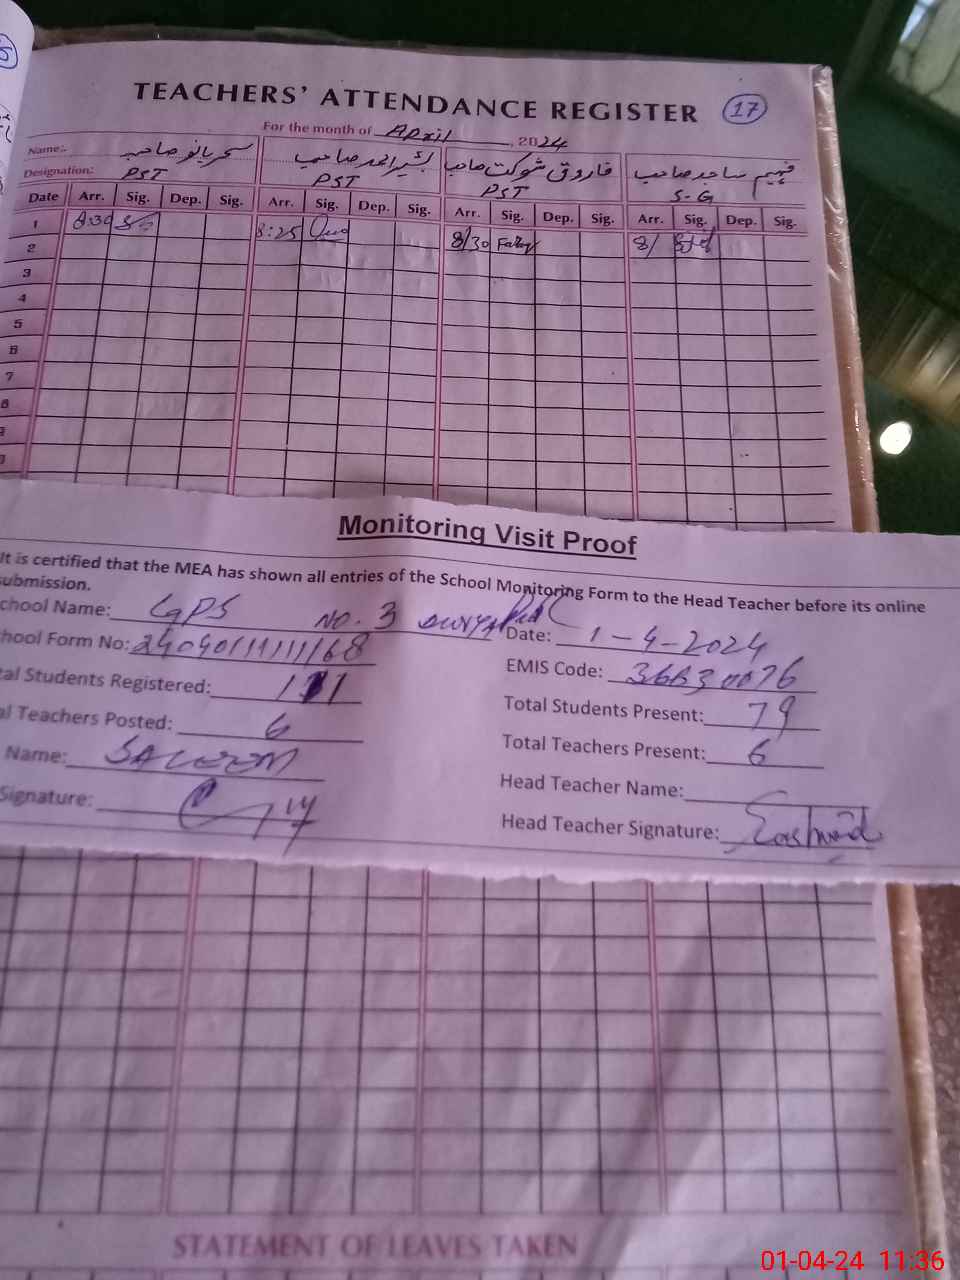 TEACHERS' ATTENDANCE REGISTER 17
For the month of April, 2024
Name:- صاحبہ احمد صاحب فاروق شوکت صاحب فہیم ساجد صاحب
Designation: PST PST PST S.G
Date Arr. Sig. Dep. Sig. Arr. Sig. Dep. Sig. Arr. Sig. Dep. Sig. Arr. Sig. Dep. Sig.
1 8:30 8:25 8/30 8/
2
3
4
5
6
7
8
Monitoring Visit Proof
It is certified that the MEA has shown all entries of the School Monitoring Form to the Head Teacher before its online
submission.
chool Name: GPS NO. 3
Date: 1-4-2024
hool Form No: 
EMIS Code: 
tal Students Registered: 
Total Students Present: 79
al Teachers Posted: 6
Total Teachers Present: 6
Name: SALEEM
Head Teacher Name:
Signature:
Head Teacher Signature:
STATEMENT OF LEAVES TAKEN
01-04-24 11:36